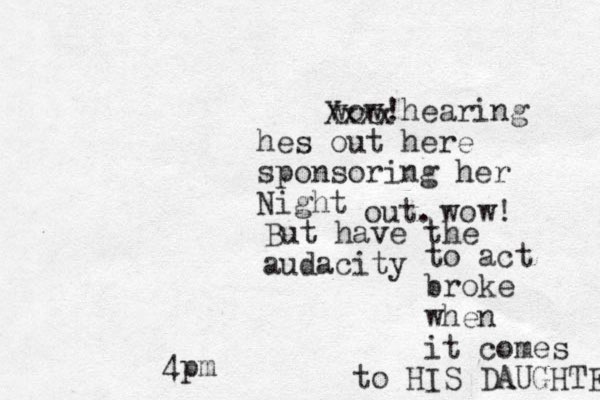 wow! hearing
hes out here
sponsoring her
Night out. wow!
But have the
audacity to act
broke
when
it comes
4pm to HIS DAUGHTE